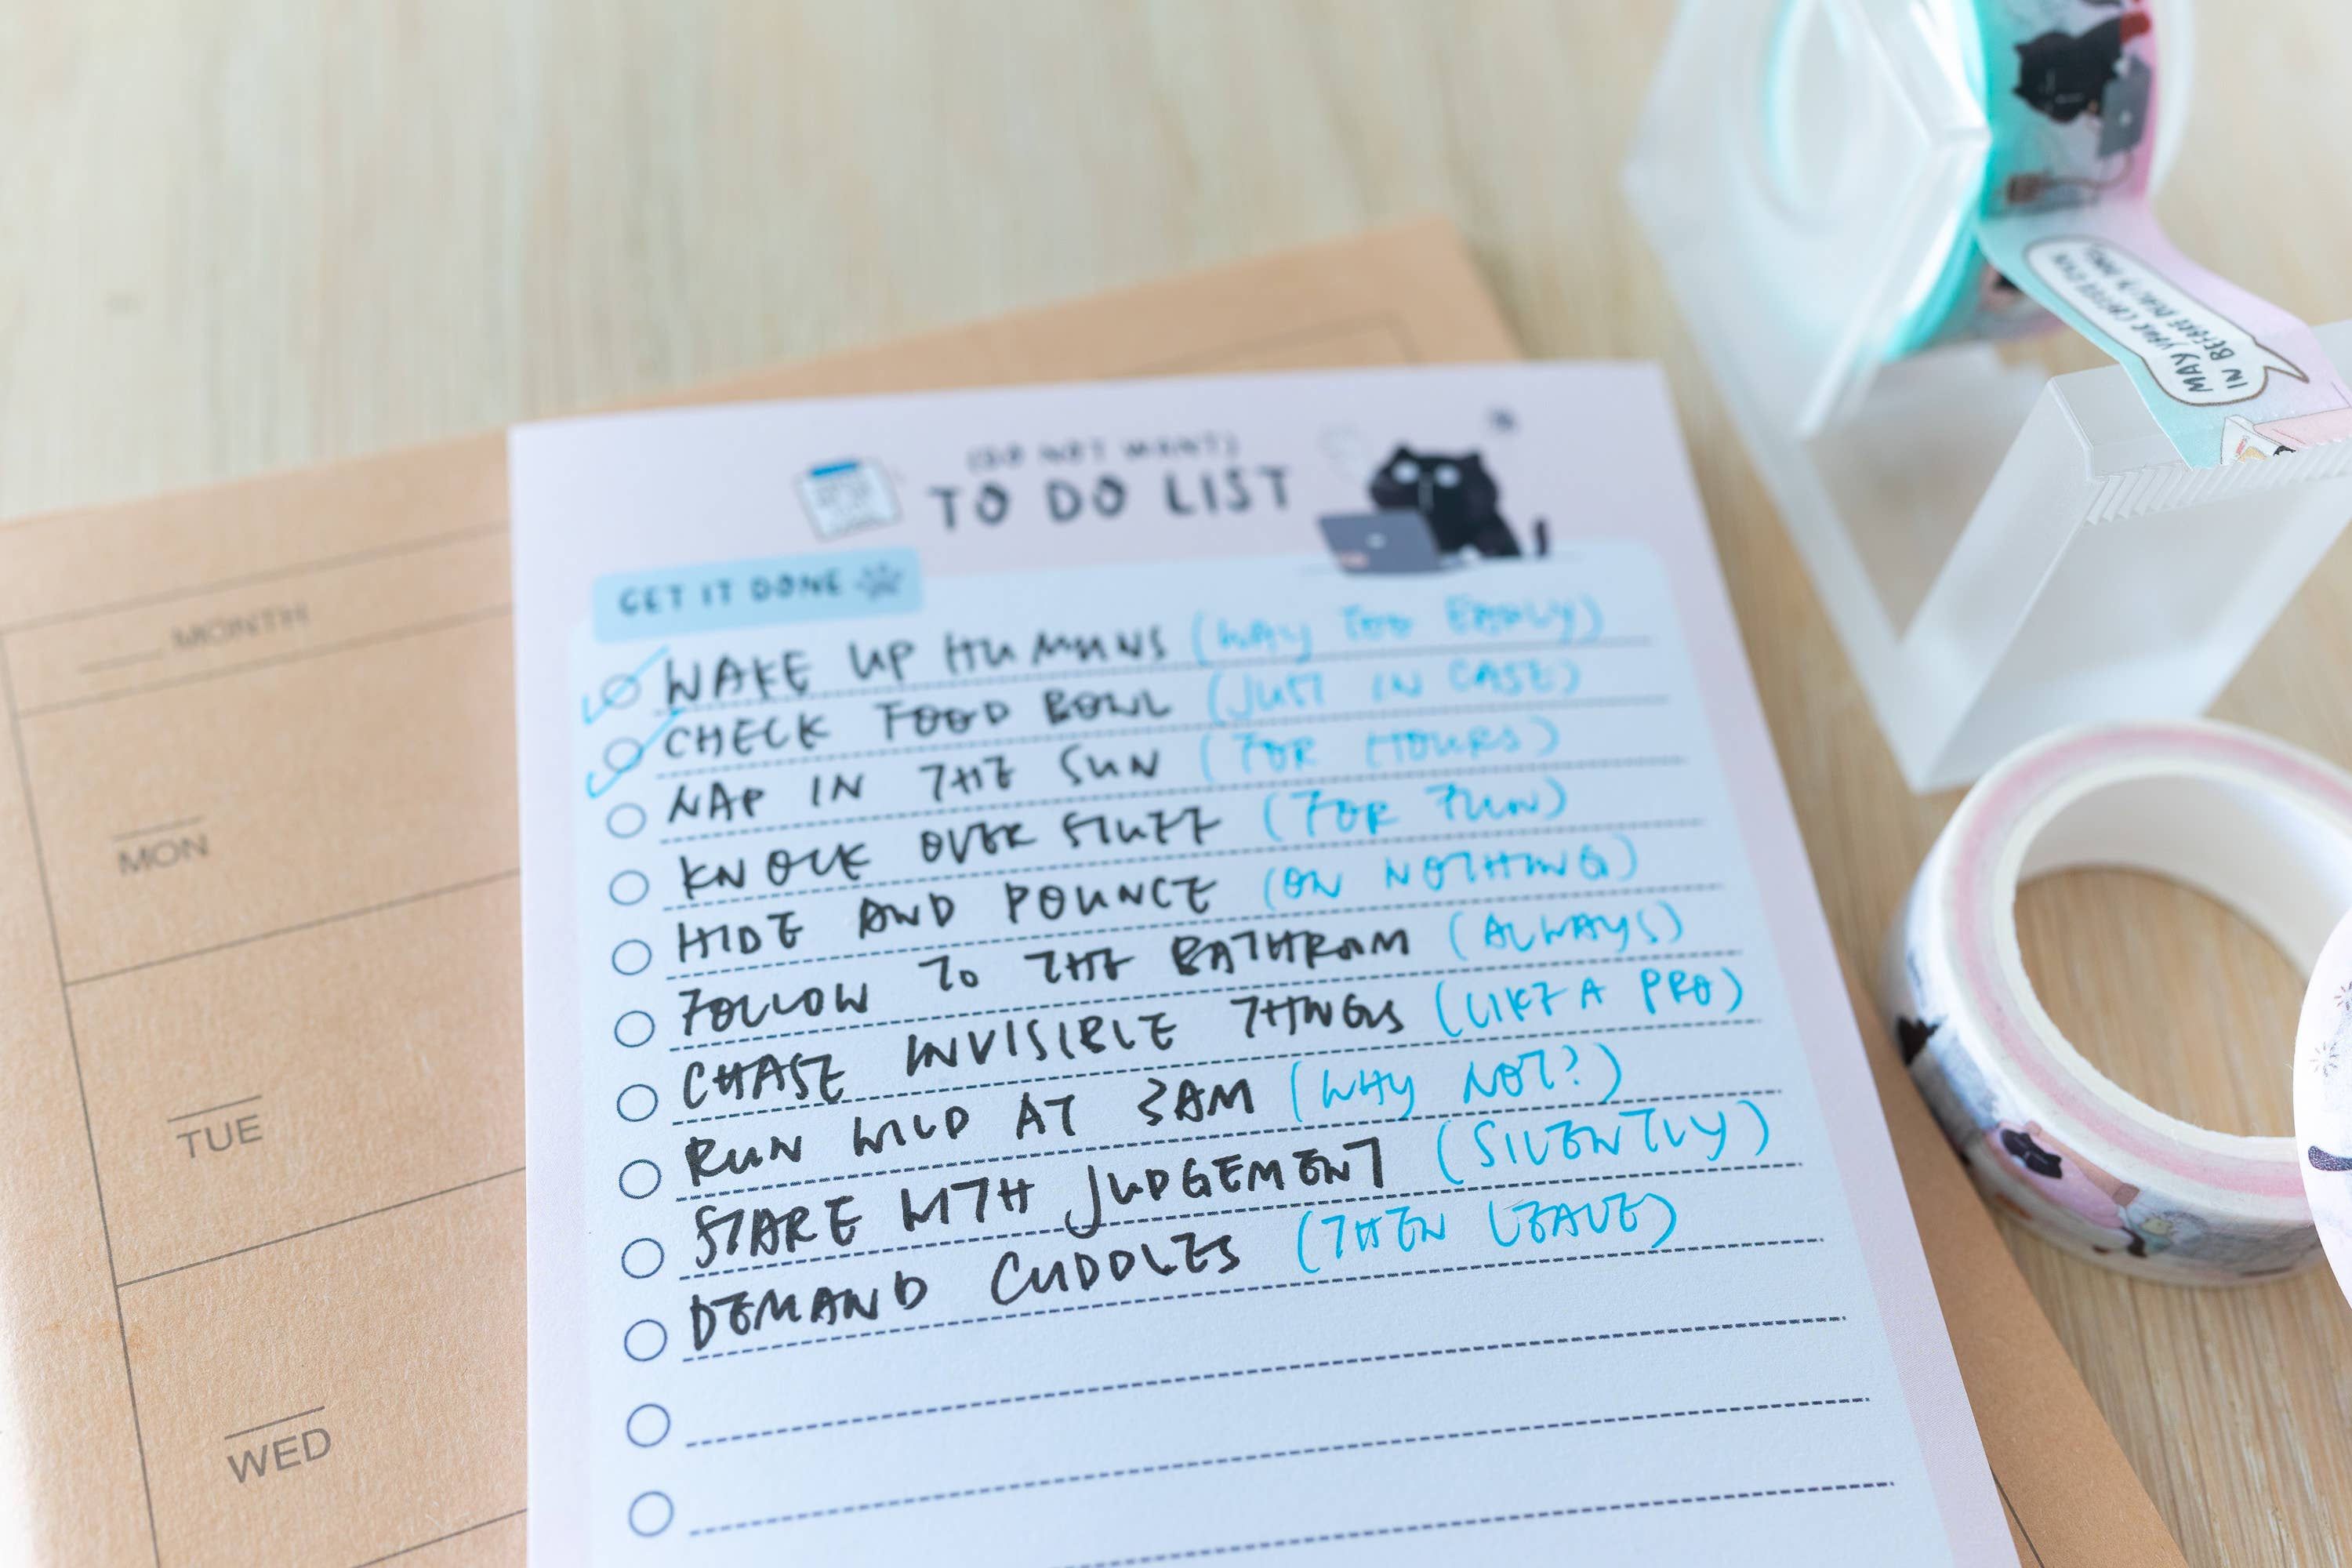 (DO NOT WANT)
TO DO LIST
GET IT DONE
WAKE UP HUMANS (WAY TOO EARLY)
CHECK FOOD BOWL (JUST IN CASE)
NAP IN THE SUN (FOR HOURS)
KNOCK OVER STUFF (FOR FUN)
HIDE AND POUNCE (ON NOTHING)
FOLLOW TO THE BATHROOM (ALWAYS)
CHASE INVISIBLE THINGS (LIKE A PRO)
RUN WILD AT 3AM (WHY NOT?)
STARE WITH JUDGEMENT (SILENTLY)
DEMAND CUDDLES (THEN LEAVE)
MONTH
MON
TUE
WED
MAY YOUR COFFEE KICK
IN BEFORE REALITY DOES